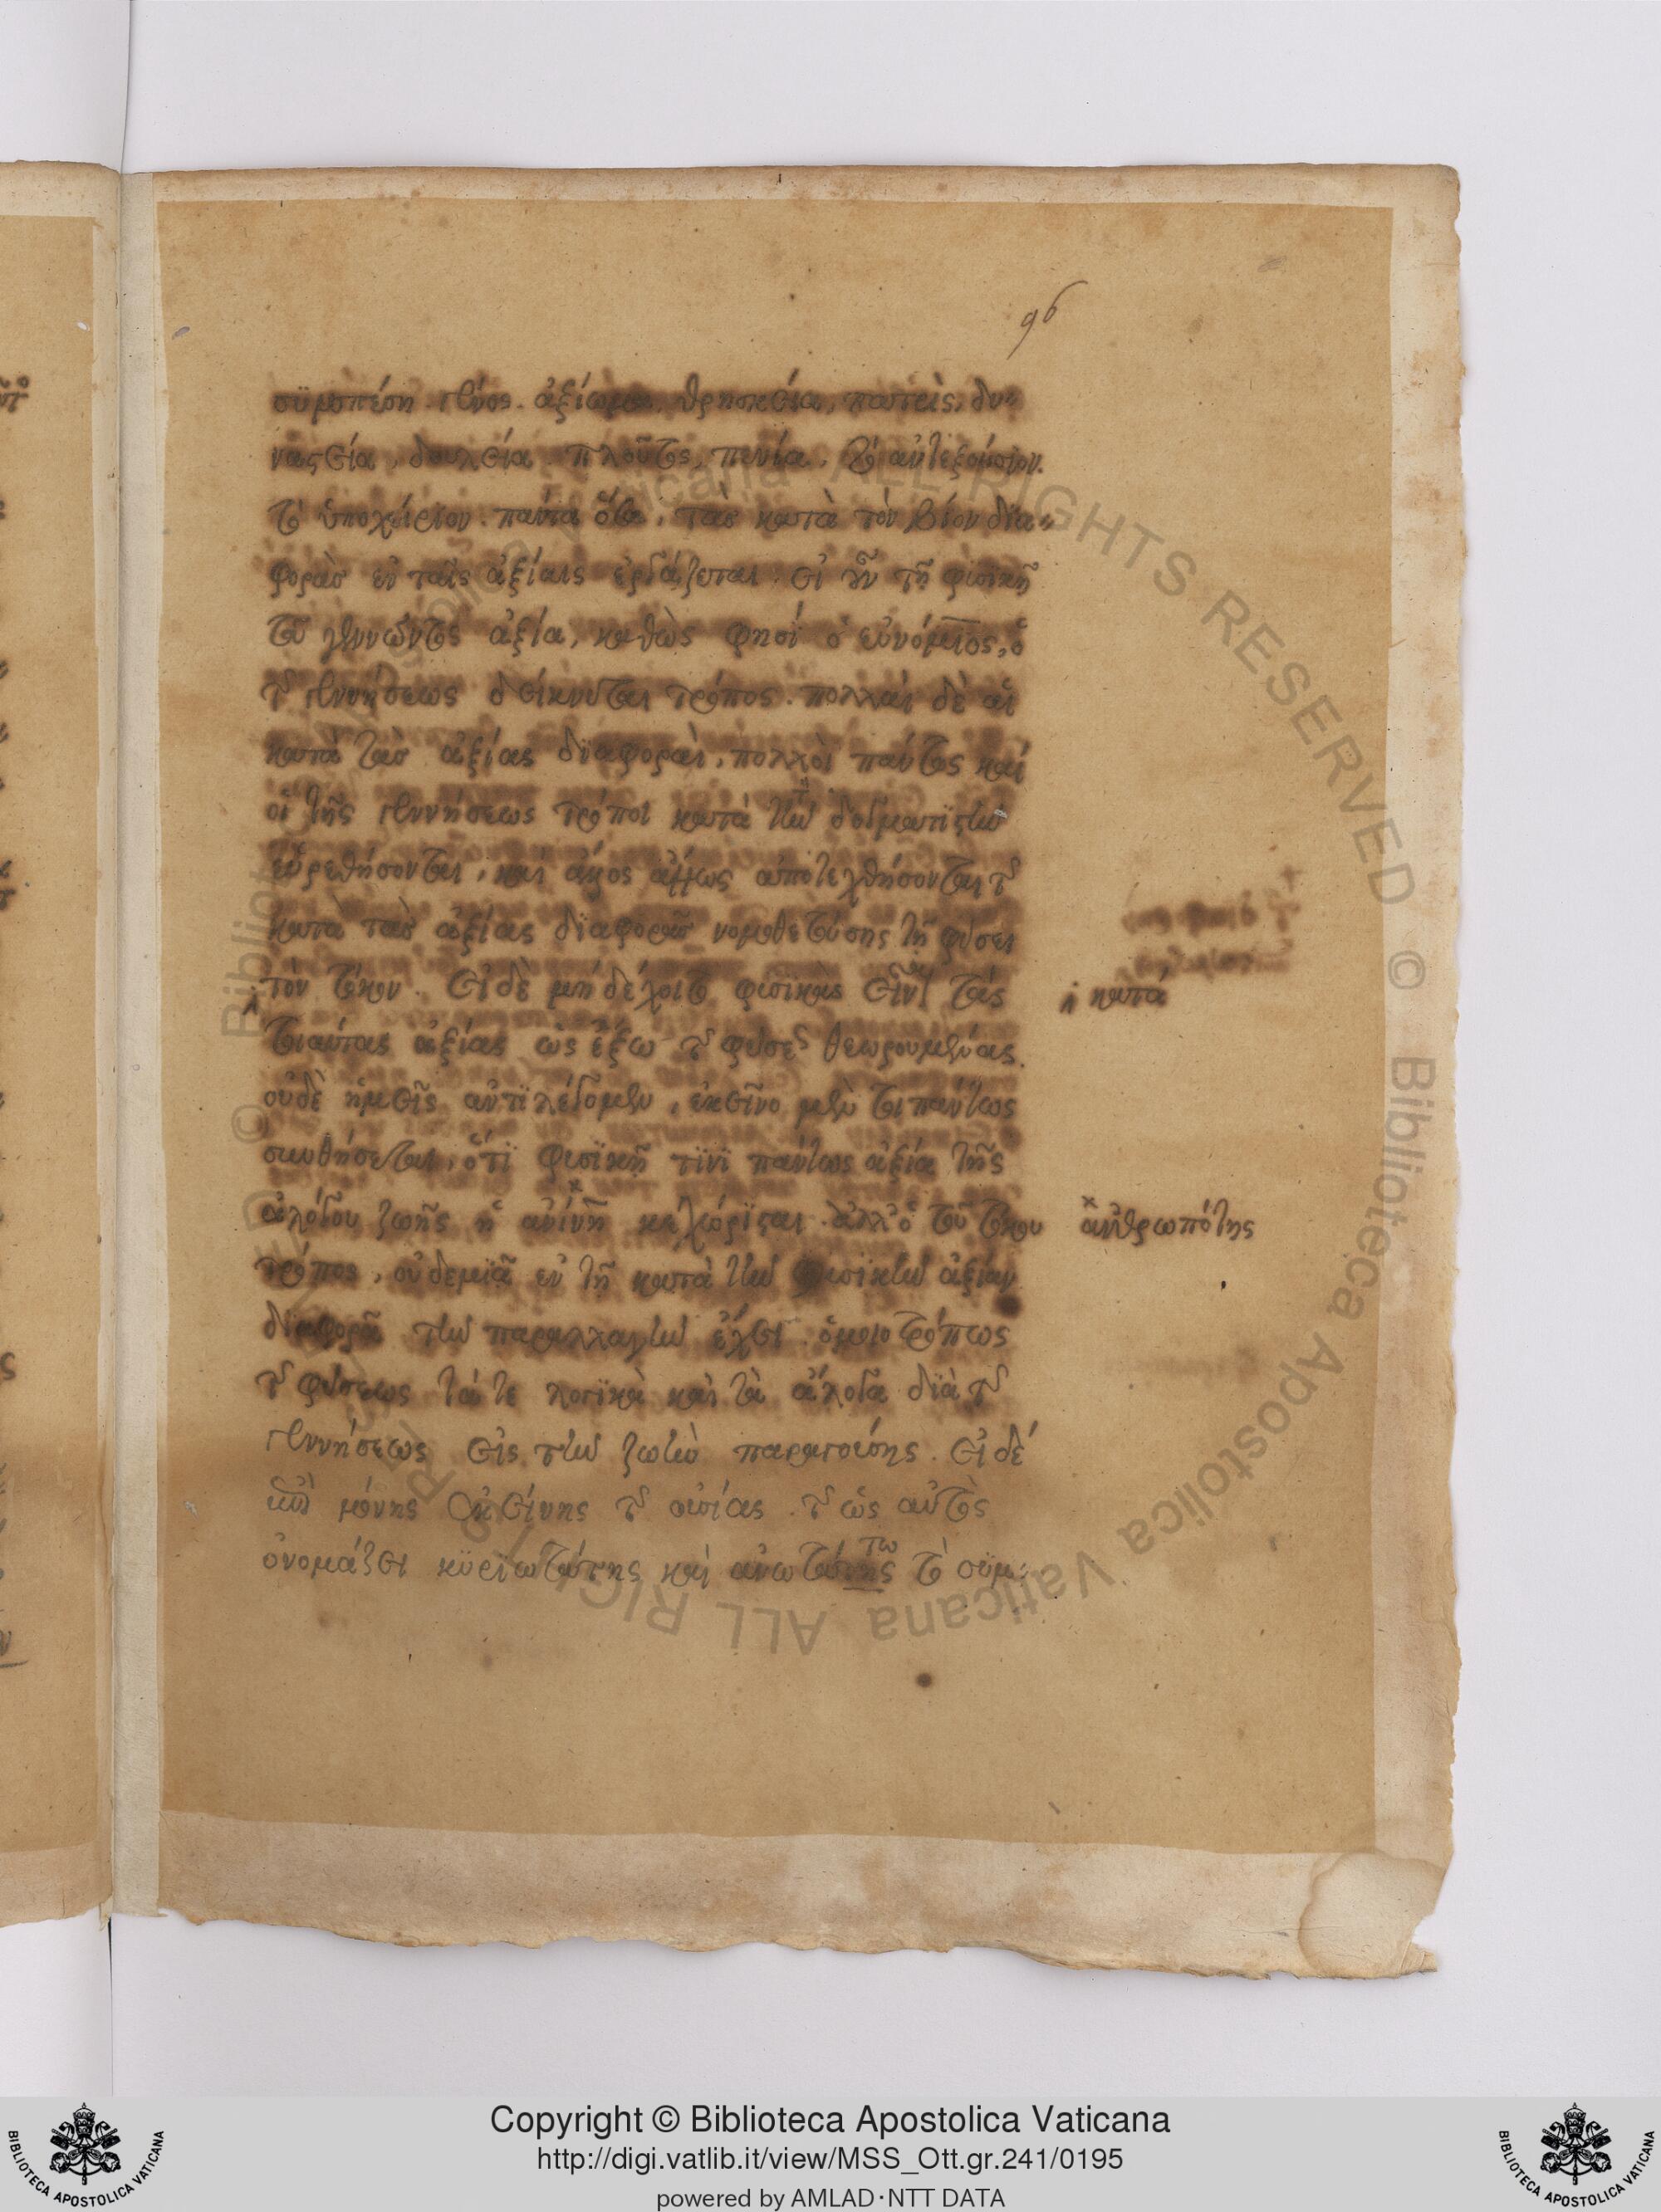 96
συμπέση γένος. ἀξίωμα, θρησκεία, πατρὶς, δυ-
ναστεία, δουλεία. πλοῦτος, πενία, τὸ αὐτεξούσιον.
τὸ ὑποχείριον. πάντα ὅσα, τὰσ κατὰ τὸν βίον δια-
φορὰσ ἐν ταῖς ἀξίαις ἐργάζεται. εἰ οὖν τῆ φυσϊκῆ
τοῦ γεννῶντος ἀξία, καθὼς φησὶ ὁ εὐνόμιος, ὁ
τῆς γεννήσεως δείκνυται τρόπος. πολλαὶ δὲ αἱ
κατὰ τὰσ ἀξίας διαφοραὶ, πολλοὶ πάντως καὶ
οἱ τῆς γεννήσεως τρόποι κατὰ τὴν δογματιστὴν
εὑρεθήσονται, καὶ ἄλλος ἄλλως ἀποτεχθήσονται τῆς
κατὰ τὰσ ἀξίας διαφορᾶσ νομοθετούσης τῆ φύσει
τὸν τόκον. εἰ δὲ μὴ δέχοιτο φυσϊκὰς εἶναι τὰς
κατὰ
τοιαύτας ἀξίας ὡς ἔξω τῆς φύσεως θεωρουμένας.
οὐδὲ ἡμεῖς ἀντϊλέγομεν, ἐκεῖνο μέν τοι πάντως
συνθήσεται, ὅτϊ φυσϊκῆ τϊνϊ πάντως ἀξία τῆς
ἀλόγου ζωῆς ἡ κεχώρϊσται. ἀλλ' ὁ τοῦ τόκου
ἀνθρωπότης
τρόπος, οὐδεμϊᾶ ἐν τῆ κατὰ τὴν φυσϊκὴν ἀξίαν
διαφορᾶ τὴν παραλλαγὴν ἔχει. ὁμοιοτρόπως
τῆς φύσεως τά τε λογϊκὰ καὶ τὰ ἄλογα διὰ τῆς
γεννήσεως εἰς τὴν ζωὴν παραγούσης. εἰ δέ
μόνης ἐκείνης τῆς οὐσίας. τῆς ὡς αὐτὸς
ὀνομάζει κϋριωτάτης καὶ ἀνωτάτης τὸ σϋμ-
τω
Copyright © Biblioteca Apostolica Vaticana
http://digi.vatlib.it/view/MSS_Ott.gr.241/0195
powered by AMLAD·NTT DATA
BIBLIOTECA APOSTOLICA VATICANA
BIBLIOTECA APOSTOLICA VATICANA
© Biblioteca Apostolica Vaticana ALL RIGHTS RESERVED